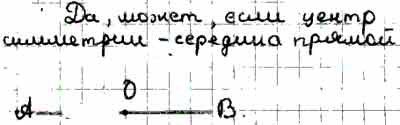 Да, может, если центр
симметрии - середина прямой
О
А В